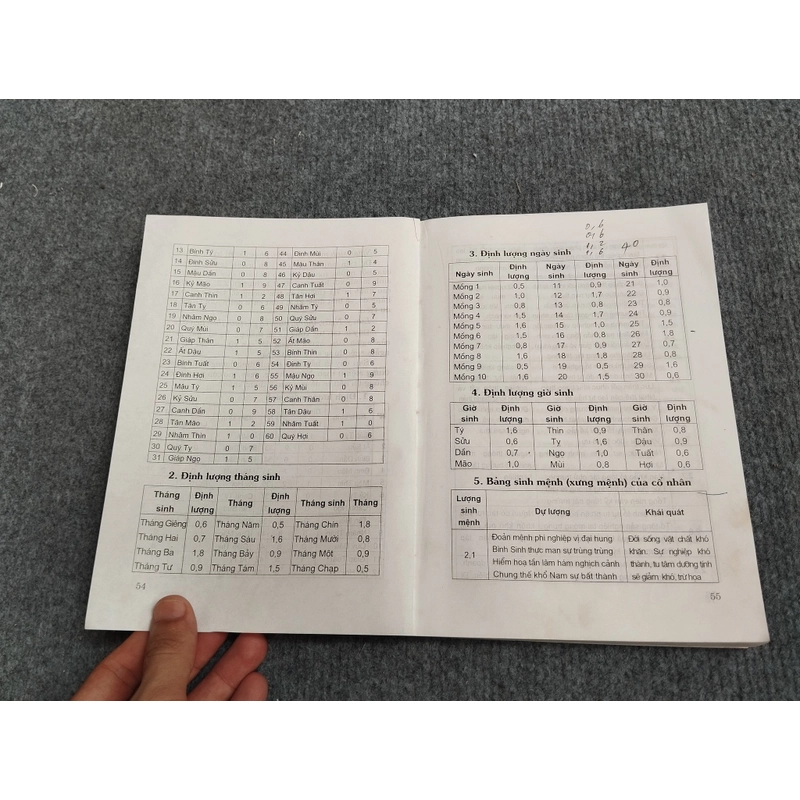 13 Bính Tý 1 6 44 Đinh Mùi 0 5
14 Đinh Sửu 0 8 45 Mậu Thân 1 4
15 Mậu Dần 0 8 46 Kỷ Dậu 0 5
16 Kỷ Mão 1 9 47 Canh Tuất 0 9
17 Canh Thìn 1 2 48 Tân Hợi 1 7
18 Tân Tỵ 0 6 49 Nhâm Tý 0 5
19 Nhâm Ngọ 0 8 50 Quý Sửu 0 7
20 Quý Mùi 0 7 51 Giáp Dần 1 2
21 Giáp Thân 1 5 52 Ất Mão 0 8
22 Ất Dậu 1 5 53 Bính Thìn 0 8
23 Bính Tuất 0 6 54 Đinh Tỵ 0 6
24 Đinh Hợi 1 6 55 Mậu Ngọ 1 9
25 Mậu Tý 1 5 56 Kỷ Mùi 0 8
26 Kỷ Sửu 0 8 57 Canh Thân 0 8
27 Canh Dần 0 9 58 Tân Dậu 1 6
28 Tân Mão 1 2 59 Nhâm Tuất 1 0
29 Nhâm Thìn 1 0 60 Quý Hợi 0 6
30 Quý Tỵ 0 7
31 Giáp Ngọ 1 5
2. Định lượng tháng sinh
Tháng sinh Định lượng Tháng Định lượng Tháng sinh Tháng
Tháng Giêng 0,6 Tháng Năm 0,5 Tháng Chín 1,8
Tháng Hai 0,7 Tháng Sáu 1,6 Tháng Mười 0,8
Tháng Ba 1,8 Tháng Bảy 0,9 Tháng Một 0,9
Tháng Tư 0,9 Tháng Tám 1,5 Tháng Chạp 0,5
54
0,6
0,6
1,2 40
1,6
3. Định lượng ngày sinh
Ngày sinh Định lượng Ngày sinh Định lượng Ngày sinh Định lượng
Mồng 1 0,5 11 0,9 21 1,0
Mồng 2 1,0 12 1,7 22 0,9
Mồng 3 0,8 13 0,8 23 0,8
Mồng 4 1,5 14 1,7 24 0,9
Mồng 5 1,6 15 1,0 25 1,5
Mồng 6 1,5 16 0,8 26 1,8
Mồng 7 0,8 17 0,9 27 0,7
Mồng 8 1,6 18 1,8 28 0,8
Mồng 9 0,8 19 0,5 29 1,6
Mồng 10 1,6 20 1,5 30 0,6
4. Định lượng giờ sinh
Giờ sinh Định lượng Giờ sinh Định lượng Giờ sinh Định lượng
Tý 1,6 Thìn 0,9 Thân 0,8
Sửu 0,6 Tỵ 1,6 Dậu 0,9
Dần 0,7 Ngọ 1,0 Tuất 0,6
Mão 1,0 Mùi 0,8 Hợi 0,6
5. Bảng sinh mệnh (xưng mệnh) của cổ nhân
Lượng sinh mệnh Dự lượng Khái quát
2.1
Đoản mệnh phi nghiệp vị đại hung
Bình Sinh thực man sự trùng trùng
Hiểm hoạ tần lâm hàm nghịch cảnh
Chung thế khổ Nam sự bất thành
Đời sống vật chất khó
khăn. Sự nghiệp khó
thành, tu tâm dưỡng tính
sẽ giảm khó, trừ hoạ
55